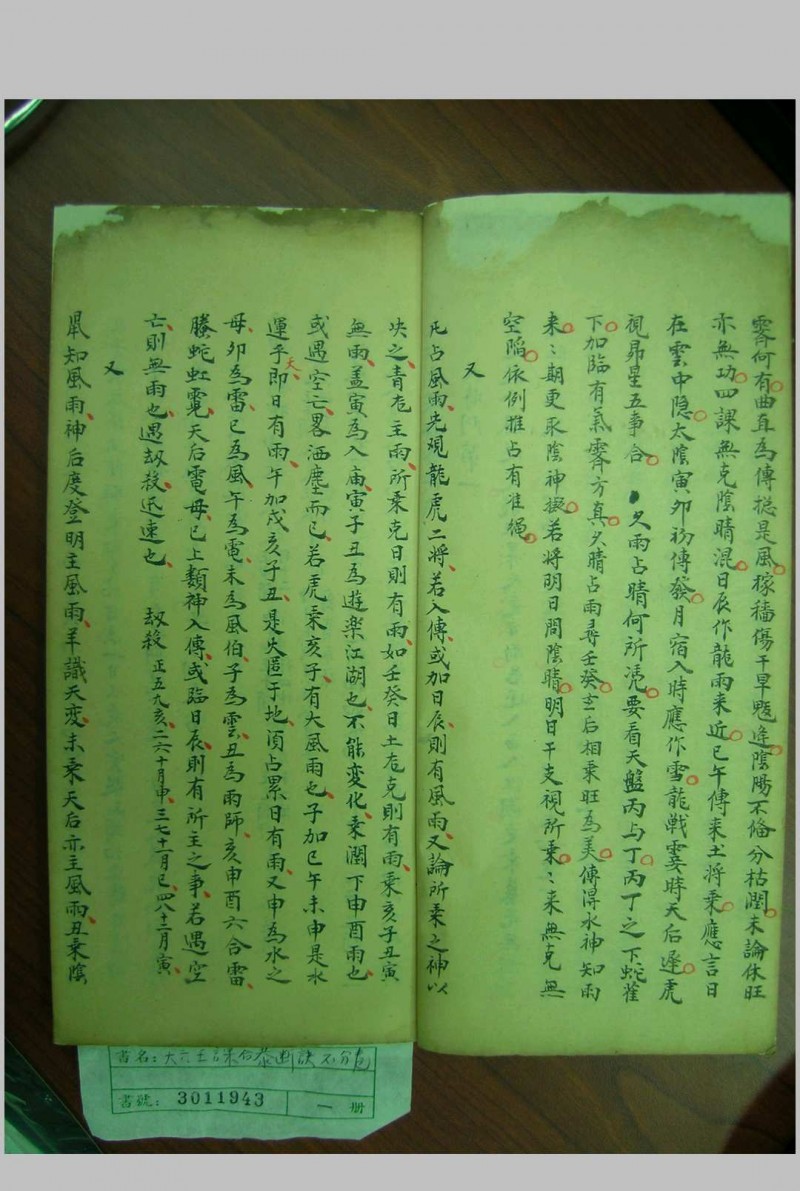 霽何有曲直為傳捴是風稼穡傷干旱㲄逢陰陽不偹分枯潤未論休旺
亦無功四課無克陰晴混日辰作龍雨来近巳午傳来土將乘應言日
在雲中隐太陰寅夘初傳發月宿入時應作雪龍戦雯時天后逢虎
視昴星五事合 久雨占晴何所凭要看天盤丙与丁丙丁之下蛇雀
下加临有氣霽方真久晴占雨尋壬癸玄后相乗旺為美傳得水神知雨
来〻期更取陰神擬若将明日問陰晴明日干支視所乗〻来無克無
空陷依例推占有准繩
又
凡占風雨先观龍虎二將若入傳或加日辰則有風雨又論所乗之神以
决之青龙主雨所乗克日則有雨如壬癸日土龙克則有雨乗亥子丑寅
無雨盖寅為入庙寅子丑為遊楽江湖也不能变化乗潤下申酉雨也
或遇空亡畧洒塵而已若虎乗亥子有大風雨也子加巳午未申是水
運乎天即日有雨午加戌亥子丑是火匿于地湏占累日有雨又申為水之
母夘為雷巳為風午為電未為風伯子為雲丑為雨師亥申酉六合雷
螣蛇虹霓天后電母已上類神入傳或临日辰則有所主之事若遇空
亡則無雨也遇刼殺迅速也 刼殺 正五九亥二六十月申三七十一月巳四八十二月寅
又
鼠知風雨神后度登明主風雨羊識天变未乗天后亦主風雨丑乗陰
書名：大六壬課合泰断决不分卷
書號：3011943 一册